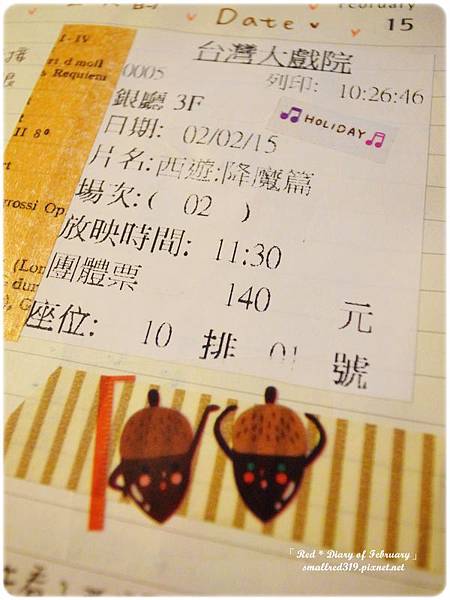 Date
February
15
I - IV
d moll
Requiem
II 8º
grossi Op
(Lon
台灣大戲院
0005 列印: 10:26:46
銀廳 3F
HOLIDAY
日期: 02/02/15
片名:西遊:降魔篇
場次:( 02 )
放映時間: 11:30
團體票 140 元
座位: 10 排 01 號
「Red * Diary of February」
smallred319.pixnet.net